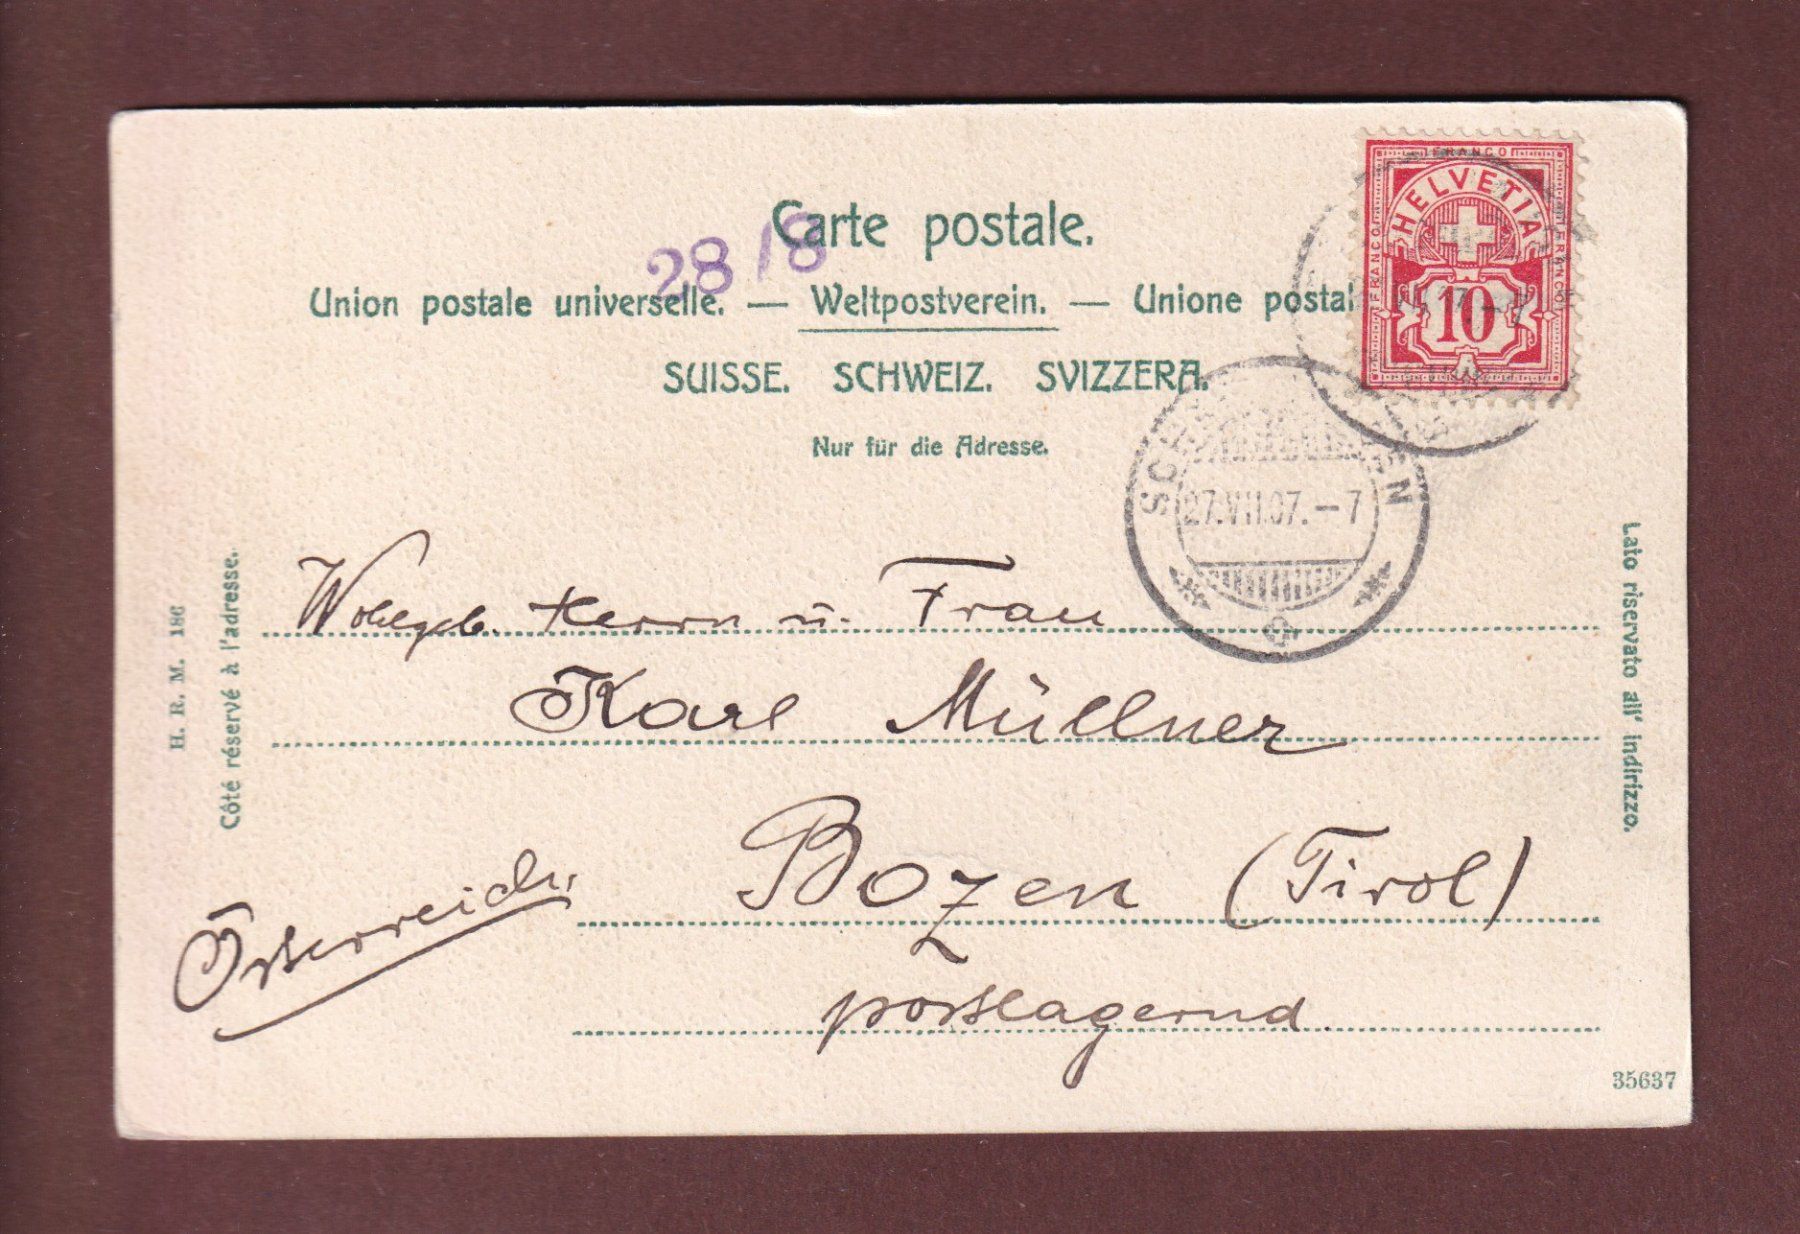 Carte postale.
28 18
Union postale universelle. — Weltpostverein. — Unione postal
SUISSE. SCHWEIZ. SVIZZERA.
Nur für die Adresse.
FRANCO
HELVETIA
FRANCO
FRANCO
10
27.VIII.07.–7
Wohlgeb. Herrn u. Frau
Karl Müllner
Bozen (Tirol)
Österreich.
postlagernd.
H. R. M. 186
Côté réservé à l'adresse.
Lato riservato all' indirizzo.
35637